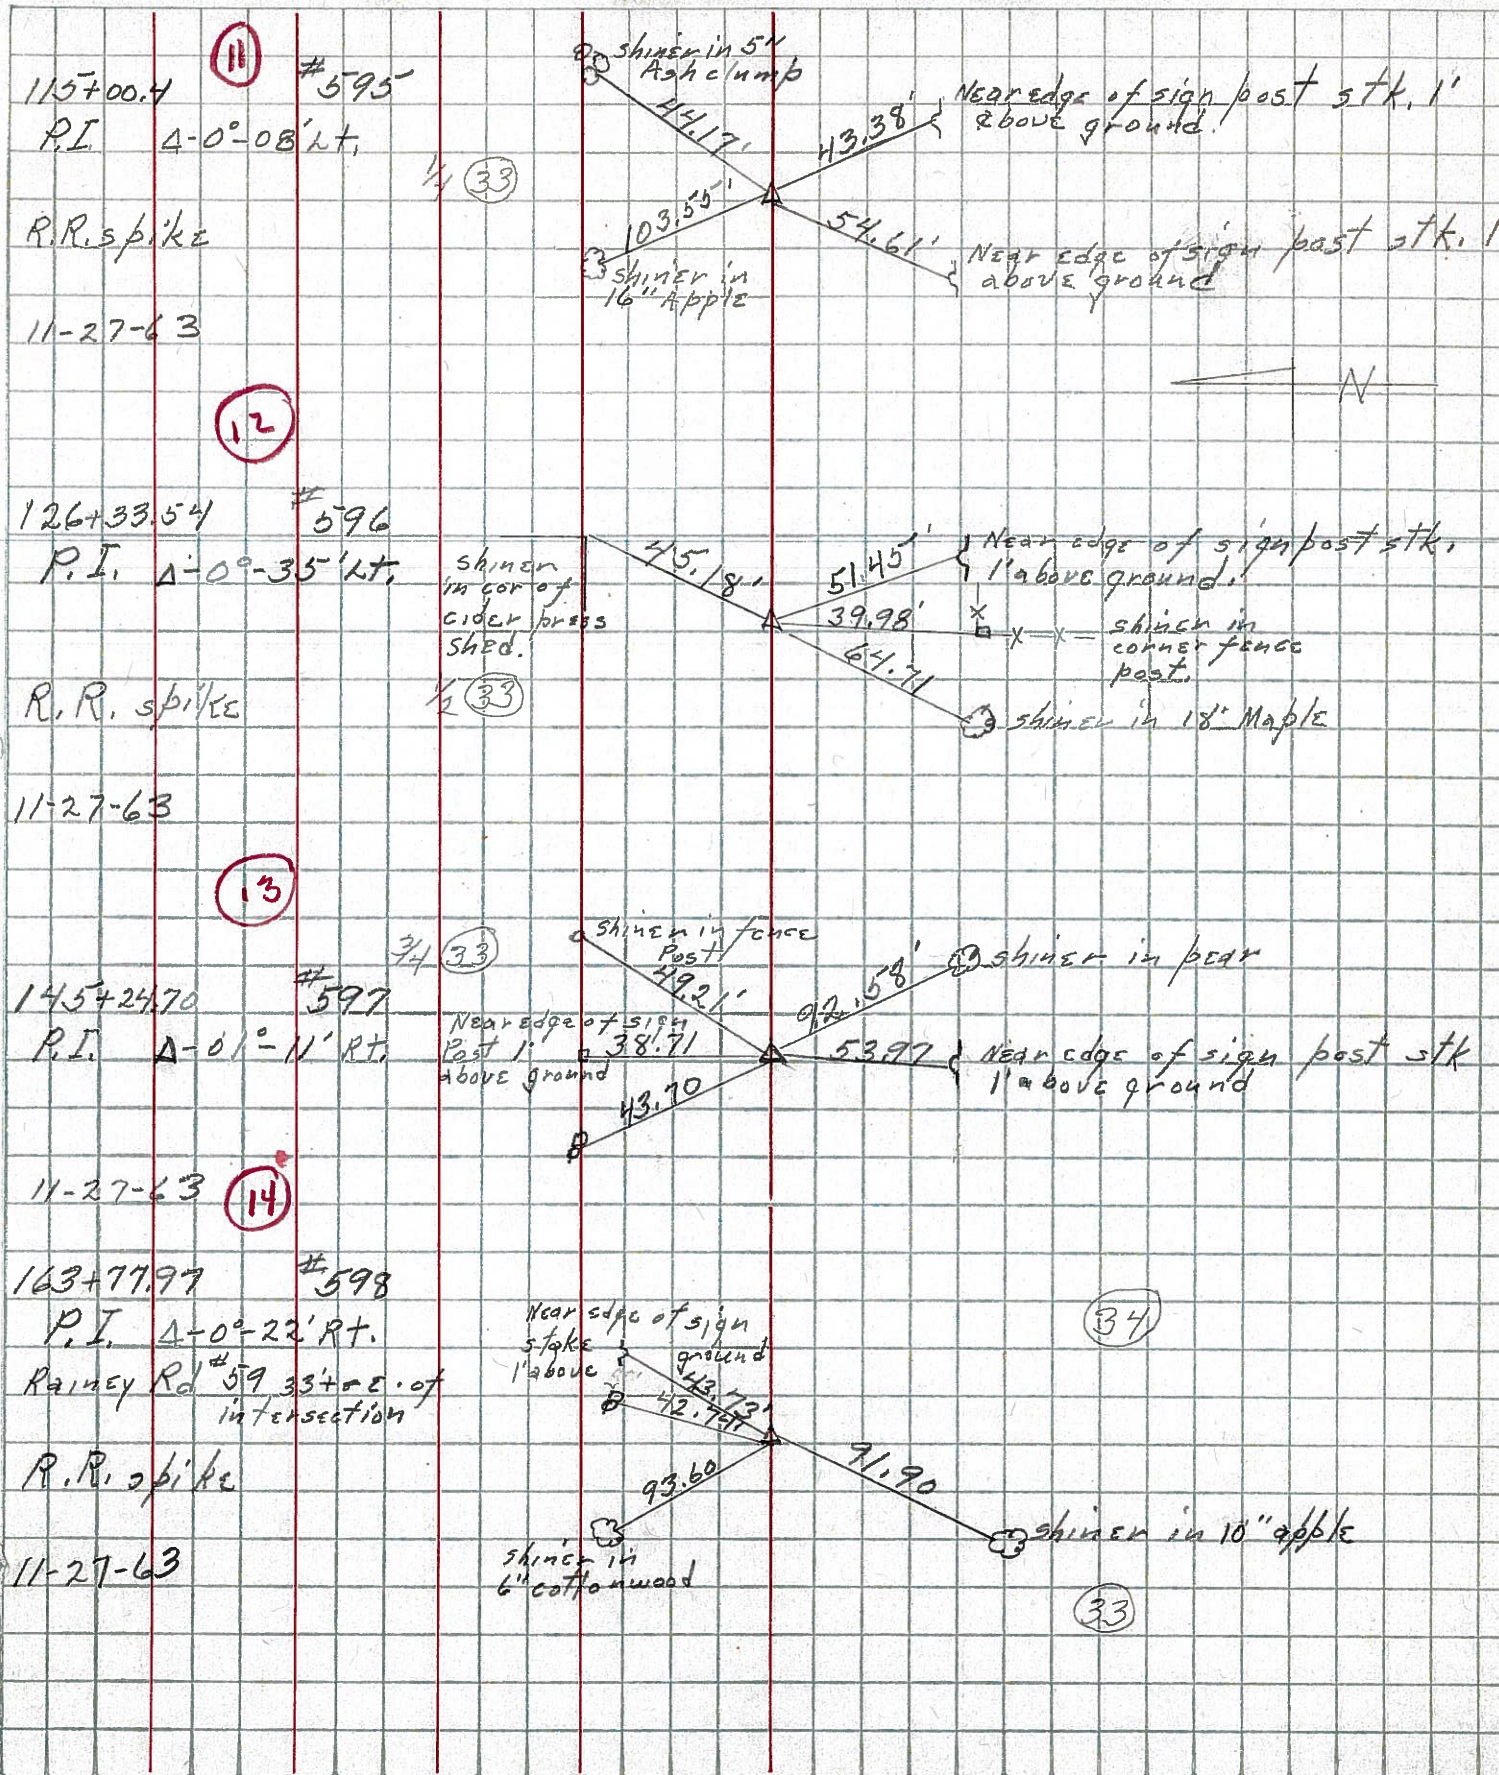 11
115+00.4 #595
P.I. Δ-0°-08' Lt.
R.R. spike
11-27-63
1/4 33
shiner in 5"
Ash clump
44.17'
43.38'
Near edge of sign post stk. 1'
above ground.
103.55'
shiner in
16" Apple
54.61'
Near edge of sign post stk. 1
above ground
N
12
126+33.54 #596
P.I. Δ-0°-35' Lt.
R.R. spike
11-27-63
shiner
in cor of
cider press
shed.
1/2 33
45.18'
51.45'
Near edge of sign post stk.
1' above ground.
39.98'
shiner in
corner fence
post.
64.71
shiner in 18" Maple
13
145+24.70 #597
P.I. Δ-01°-11' Rt.
11-27-63
3/4 33
shiner in fence
Post
49.21'
92.58'
shiner in pear
Near edge of sign
Post 1'
above ground
38.71
53.97
Near edge of sign post stk
1' above ground
43.70
14
163+77.97 #598
P.I. Δ-0°-22' Rt.
Rainey Rd #59 33'+- E. of
intersection
R.R. spike
11-27-63
Near edge of sign
stake
1' above
ground
43.73'
42.74'
93.60
shiner in
6" cottonwood
91.90
shiner in 10" apple
34
33